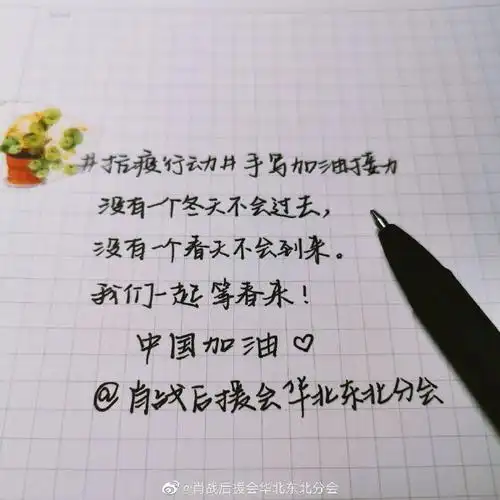 #抗疫行动#手写加油接力
没有一个冬天不会过去，
没有一个春天不会到来。
我们一起等春来！
中国加油♡
@肖战后援会华北东北分会
@肖战后援会华北东北分会